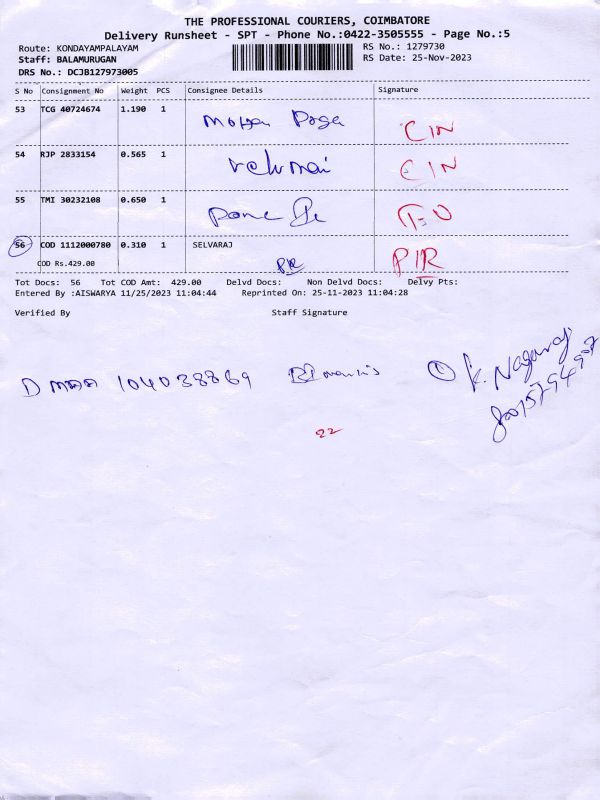 THE PROFESSIONAL COURIERS, COIMBATORE
Delivery Runsheet - SPT - Phone No.:0422-3505555 - Page No.:5
Route: KONDAYAMPALAYAM RS No.: 1279730
Staff: BALAMURUGAN RS Date: 25-Nov-2023
DRS No.: DCJB127973005
S No Consignment No Weight PCS Consignee Details Signature
53 TCG 40724674 1.190 1
54 RJP 2833154 0.565 1
55 TMI 30232108 0.650 1
56 COD 1112000780 0.310 1 SELVARAJ
COD Rs.429.00 PIR PIR
Tot Docs: 56 Tot COD Amt: 429.00 Delvd Docs: Non Delvd Docs: Delvy Pts:
Entered By :AISWARYA 11/25/2023 11:04:44 Reprinted On: 25-11-2023 11:04:28
Verified By Staff Signature
104038869 K. Nagaraj
22